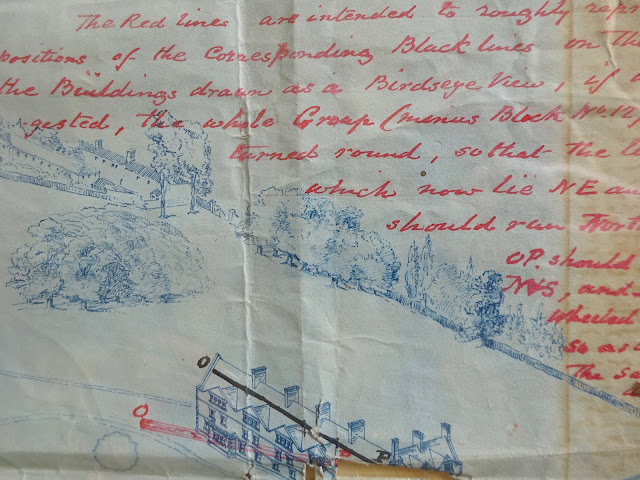 The Red lines are intended to roughly
positions of the Corresponding Black lines on
the Buildings drawn as a Birdseye View, if
gested, the whole Group (minus Block No. 12)
turned round, so that the
which now lie NE
should run
OP. should
N&S, and
Wheeled
so as
The
O
O
P